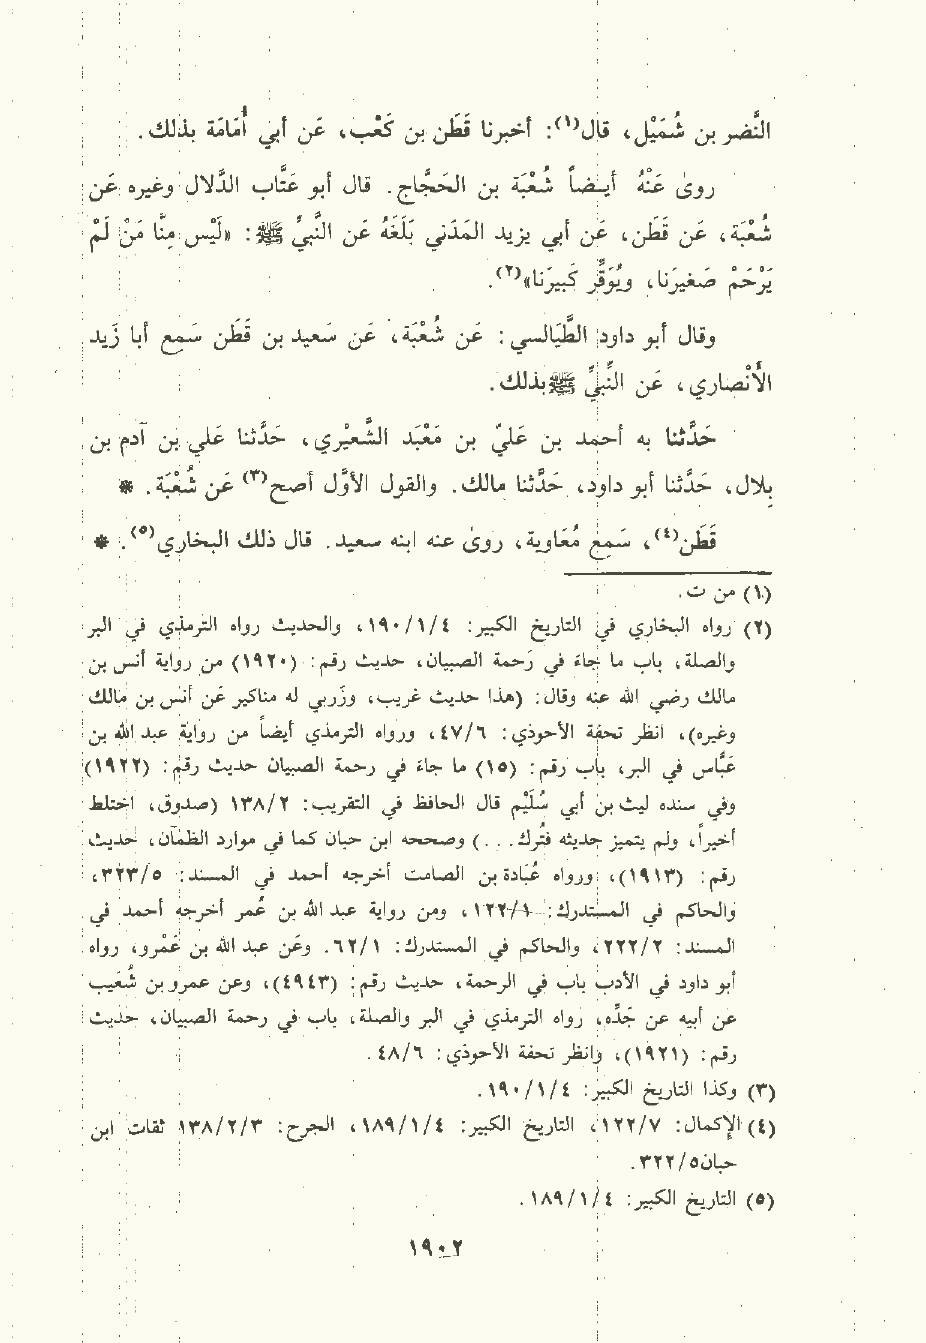 النَّضر بن شُمَيْل، قال(١): أخبرنا قَطَن بن كَعْب، عَن أبي أُمَامَة بذلك.
وروىٰ عَنْهُ أيضاً شُعْبَة بن الحَجَّاج. قال أبو عَتَّاب الدَّلال وغيره عَن
شُعْبَة، عَن قَطَن، عَن أبي يزيد المَدَني بَلَغَهُ عَن النَّبيِّ ﷺ: «لَيْس مِنَّا مَنْ لَمْ
يَرْحَمْ صَغيرَنا، ويُوَقِّرْ كَبيرَنا»(٢).
وقال أبو داود الطَّيَالسي: عَن شُعْبَة، عَن سَعيد بن قَطَن سَمع أبا زَيد
الأَنْصاري، عَن النَّبيِّ ﷺ بذلك.
حَدَّثنا به أحمد بن عَليّ بن مَعْبَد الشَّعْيري، حَدَّثنا عَلي بن آدم بن
بِلال، حَدَّثنا أبو داود، حَدَّثنا مالك. والقول الأوَّل أصح(٣) عَن شُعْبَة. *
قَطَن(٤)، سَمع مُعَاوية، روىٰ عنه ابنه سعيد. قال ذلك البخاري(٥). *
(١) من ت.
(٢) رواه البخاري في التاريخ الكبير: ١٩٠/١/٤، والحديث رواه الترمذي في البر
والصلة، باب ما جاء في رَحمة الصبيان، حديث رقم: (١٩٢٠) من رواية أنس بن
مالك رضي الله عنه وقال: (هذا حديث غريب، وزَربي له مناكير عَن أنس بن مالك
وغيره)، انظر تحفة الأحوذي: ٤٧/٦، ورواه الترمذي أيضاً من رواية عبد الله بن
عَبَّاس في البر، باب رقم: (١٥) ما جاء في رحمة الصبيان حديث رقم: (١٩٢٢)
وفي سنده ليث بن أبي سُلَيْم قال الحافظ في التقريب: ١٣٨/٢ (صدوق، اختلط
أخيراً، ولم يتميز حديثه فتُرك...) وصححه ابن حبان كما في موارد الظمآن، حديث
رقم: (١٩١٣)، ورواه عُبَادة بن الصامت أخرجه أحمد في المسند: ٣٢٣/٥،
والحاكم في المستدرك: ١٢٢/١، ومن رواية عبد الله بن عُمر أخرجه أحمد في
المسند: ٢٢٢/٢، والحاكم في المستدرك: ٦٢/١. وعَن عبد الله بن عَمْرو، رواه
أبو داود في الأدب باب في الرحمة، حديث رقم: (٤٩٤٣)، وعن عمرو بن شُعَيب
عن أبيه عن جَدِّه، رواه الترمذي في البر والصلة، باب في رحمة الصبيان، حديث
رقم: (١٩٢١)، وانظر تحفة الأحوذي: ٤٨/٦.
(٣) وكذا التاريخ الكبير: ١٩٠/١/٤.
(٤) الإكمال: ١٢٢/٧، التاريخ الكبير: ١٨٩/١/٤، الجرح: ١٣٨/٢/٣ ثقات ابن
حبان٣٢٢/٥.
(٥) التاريخ الكبير: ١٨٩/١/٤.
١٩٠٢